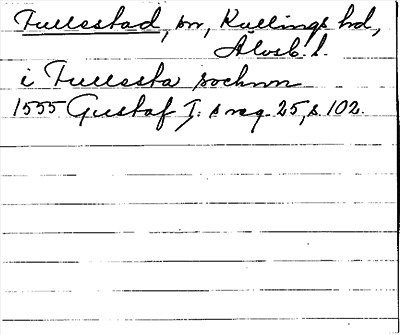 Tullestad, sn, Kullings hd,
Älvsb. l.
i Tullesta sochnn
1555 Gustaf I:s reg. 25, s. 102.